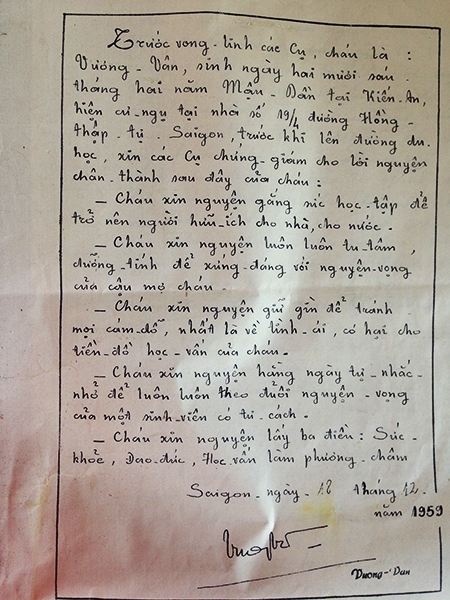 Trước vong-linh các Cụ, cháu là :
Vương-Vân, sinh ngày hai mươi sau-
tháng hai năm Mậu-Dần tại Kiến-An,
hiện cư-ngụ tại nhà số 19/4 đường Hồng-
thập-tự. Saigon, trước khi lên đường du-
học, xin các Cụ chứng-giám cho lời nguyện
chân-thành sau đây của cháu :
— Cháu xin nguyện gắng sức học-tập để
trở nên người hữu-ích cho nhà, cho nước.
— Cháu xin nguyện luôn luôn tu-tâm,
dưỡng-tính để xứng-đáng với nguyện-vọng
của cậu mợ cháu.
— Cháu xin nguyện giữ gìn để tránh
mọi cám-dỗ, nhất là về tình-ái, có hại cho
tiền-đồ học-vấn của cháu.
— Cháu xin nguyện hằng ngày tự-nhắc-
nhở để luôn luôn theo đuổi nguyện-vọng
của một sinh-viên có tư-cách.
— Cháu xin nguyện lấy ba điều : Sức-
khỏe, Đạo-đức, Học-vấn làm phương-châm
Saigon-ngày-18 tháng 12-
năm 1959